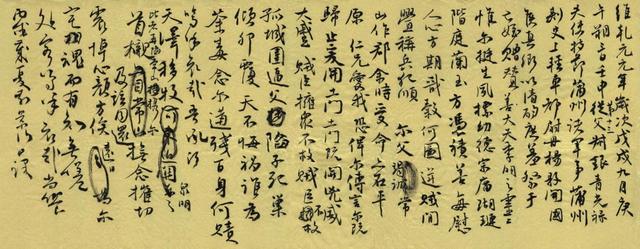 維乾元元年歲次戊戌九月庚
午朔三日壬申第十三從父叔銀青光祿
夫使持節蒲州諸軍事蒲州
刺史上輕車都尉丹楊縣開國
侯真卿以清酌庶羞祭于
亡姪贈贊善大夫季明之靈曰
惟爾挺生夙標幼德宗廟瑚璉
階庭蘭玉方憑積善每慰
人心方期戩穀何圖逆賊閒
釁稱兵犯順爾父竭誠常
山作郡余時受命亦在平
原仁兄愛我恐俾爾傳言爾既
歸止爰開土門土門既開凶威
大蹙賊臣擁眾不救賊臣不救
孤城圍逼父陷子死巢
傾卵覆天不悔禍誰為
荼毒念爾遘殘百身何贖
嗚呼哀哉吾承
天澤移牧河關泉明
比者再陷常山攜爾
首櫬及茲同還撫念摧切
震悼心顏方俟遠日卜爾
宅魂而有知無嗟
久客嗚呼哀哉尚饗